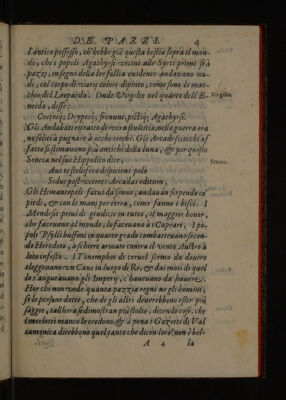 DE PAZZI. 4
l'antico possesso, ch'hebbe già questa bestia sopra il mon-
do, che i popoli Agathyrsi vicini alle Syrti prime se à
pazzi, in segno della lor follia euidente andauano nu-
di, col corpo di varij colori dipinto, come sono le mac-
chie del Leopardo. Onde Virgilio nel quarto dell'E-
neida, disse:
Virgilio.
Cretesq; Dryopesq; fremunt, pictiq; Agathyrsi.
Gli Andabati ritratto di vera stultitia, nella guerra era
no soliti à pugnare à occhi ciechi. Gli Arcadi sciocchi af
fatto si stimauano più antichi della luna, & per questo
Seneca nel suo Hippolito dice,
Seneca.
Aut te stellifero despiciens polo
Sidus post veteres Arcadas editum.
Gli Himantopoli fatui da senno, andauan serpendo co'
piedi, & con le mani per terra, come fanno i bisci. I
Mendesij primi di giuditio in tutto, il maggior honor,
che facreuano al mondo, lo faceuano à i Caprari, I po-
poli Psylli buffoni in quarto grado combatteuano secon-
do Herodoto, à schiere armate contra il vento Austro à
loro infesto. I Tinemphoi di ceruel scemo da douero
eleggeuano vn Cane in luogo di Re, & dai moti di quel
lo s'augurauano gli Imperij, c'haueuano da hauere.
Hor chi non vede quanta pazzia regni ne gli homini,
se le persone dette, che de gli altri deuerebbono esser più
saggie, tall'hora si dimostran più stolte, dicendo cose, che
i merlotti manco le credono, & à pena i Gazotti di Val
camonica direbbono quel, tanto che dicon loro? non è bel-
A 4 la